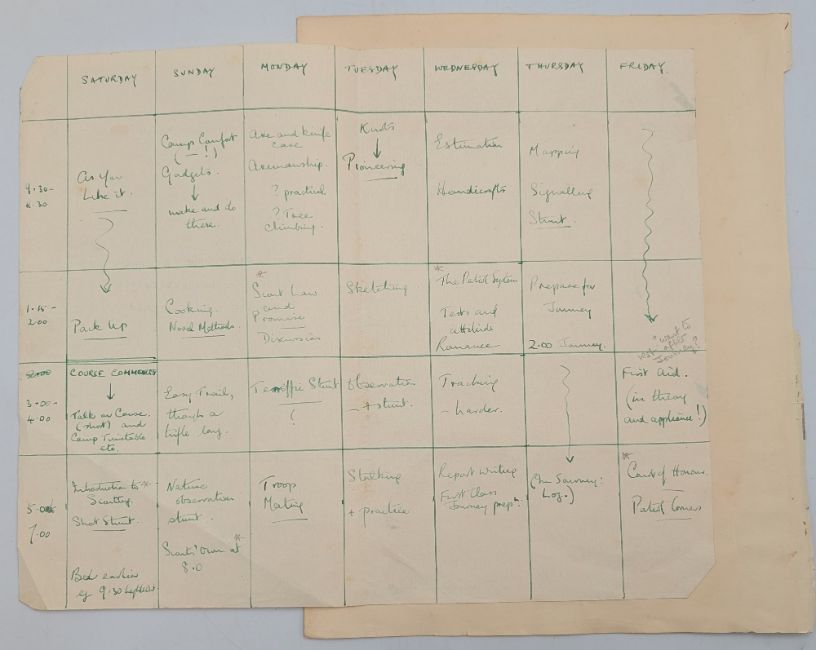 SATURDAY SUNDAY MONDAY TUESDAY WEDNESDAY THURSDAY FRIDAY.
As You
Like it.
Camp Comfort
( — !)
Gadgets.
make and do
there.
Axe and knife
care
Axemanship.
? practice
? Tree
climbing.
Knots
Pioneering
Estimation
Handicrafts
Mapping
Signalling
Stunt.
1.15 -
2.00
Pack Up
Cooking.
Nosed Methods.
* Scout Law
and
Promise
Discussion
Sketching
* The Patrol System
Tests and
attitude
Romance
Prepare for
Journey
2.00 Journey.
"want to
rest after
Journey?
3.00 -
4.00
COURSE COMMENCES
Talk on Course.
(short) and
Camp Timetable
etc.
Easy Trails,
though a
trifle long.
Terrific Stunt
?
Observation
- + stunt.
Tracking
- harder.
First Aid.
(in theory
and appliance!)
5.00
7.00
Introduction to *
Scouting
Short Stunt.
Bed earlier
eg 9.30 Lights Out
Nature
observation
stunt.
Scouts' Own at *
8.0
Troop
Meeting
Stalking
+ practice
Report Writing
First Class
Journey prepn.
(On Journey:
Log.)
* Court of Honour
Patrol Corners